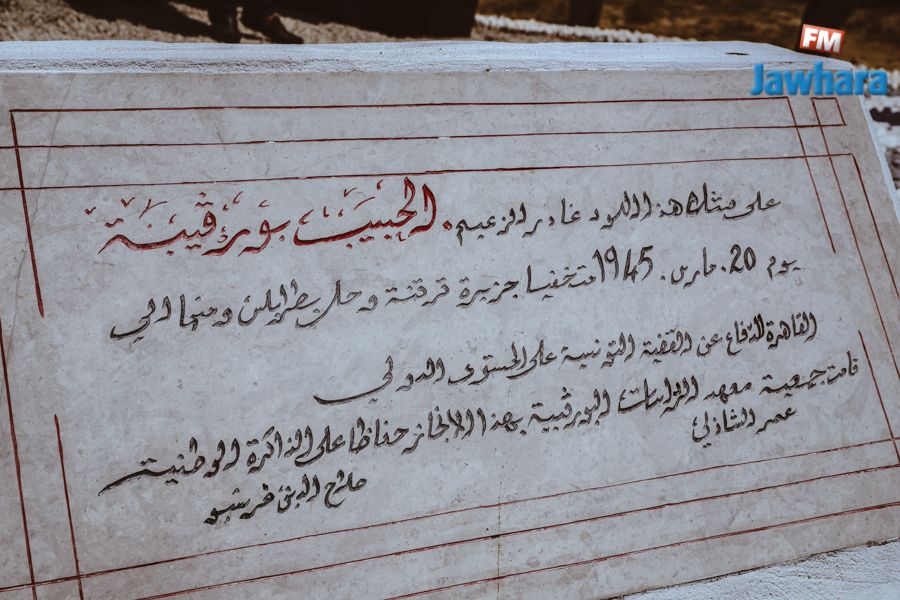 FM
Jawhara
على مثل هذا اللود غادر الزعيم. الحبيب بورقيبة
يوم 20. مارس. 1945 متخفيا جزيرة قرقنة وحل بطرابلس ومنها الى
القاهرة للدفاع عن القضية التونسية على المستوى الدولي
قامت جمعية معهد الدراسات البورقيبية بهذا الانجاز حفاظا على الذاكرة الوطنية
عمر الشاذلي
صلاح الدين فرشيو